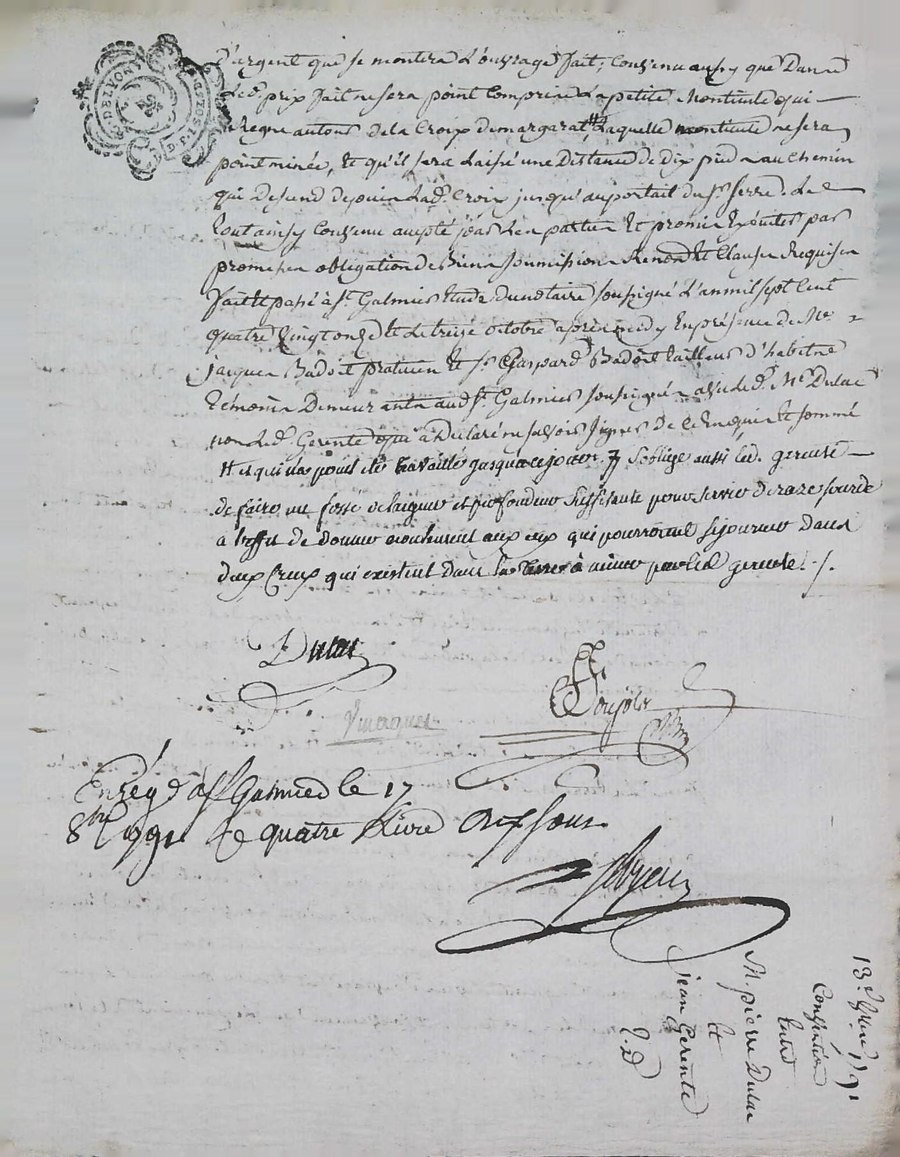 d'argent que se montera L'ouvrage fait, Convenu aussy que Dans
Led. prix fait ne sera point Comprise La petite Monticule qui
Regne autour de la Croix de margarat, Laquelle monticule ne sera
point minée, Et qu'il sera Laissé une Distance de Dix pieds au chemin
qui Descend depuis Lad. Croix jusqu'au portail du Sr. Serre. Le
tout ainsy Convenu accepté par Les parties Et promis Executer par
promesses obligation de Biens soumissions Renon. Et Clauses Requises
fait Et passé à St. Galmier Etude du notaire soussigné L'an mil sept Cent
quatre vingt onze Et Le treize octobre après midy En présence de Me.
jacques Badoit praticien Et Sr. Gaspard Badoit tailleur d'habits
temoins Demeurants aud. St. Galmier soussignés avec led. Me Dulac
non Led. Gerente qui a Declaré ne savoir signer De ce Enquis Et sommé
jusqu'à ce jour. S'oblige aussi led. gerente
de faire un fossé de largeur et profondeur suffisante pour servir de raze sourde
à l'effet de donner écoulement aux eaux qui pourroient séjourner dans
deux Creux qui existent dans la terre à miner par led gerente ./.
Dulac
Enregd à St Galmier le 17
8bre 1791 Rc quatre Livre Dix sous
13 8bre 1791
Convention
Entre
M. pierre Dulac
Et
jean Gerente
DELION